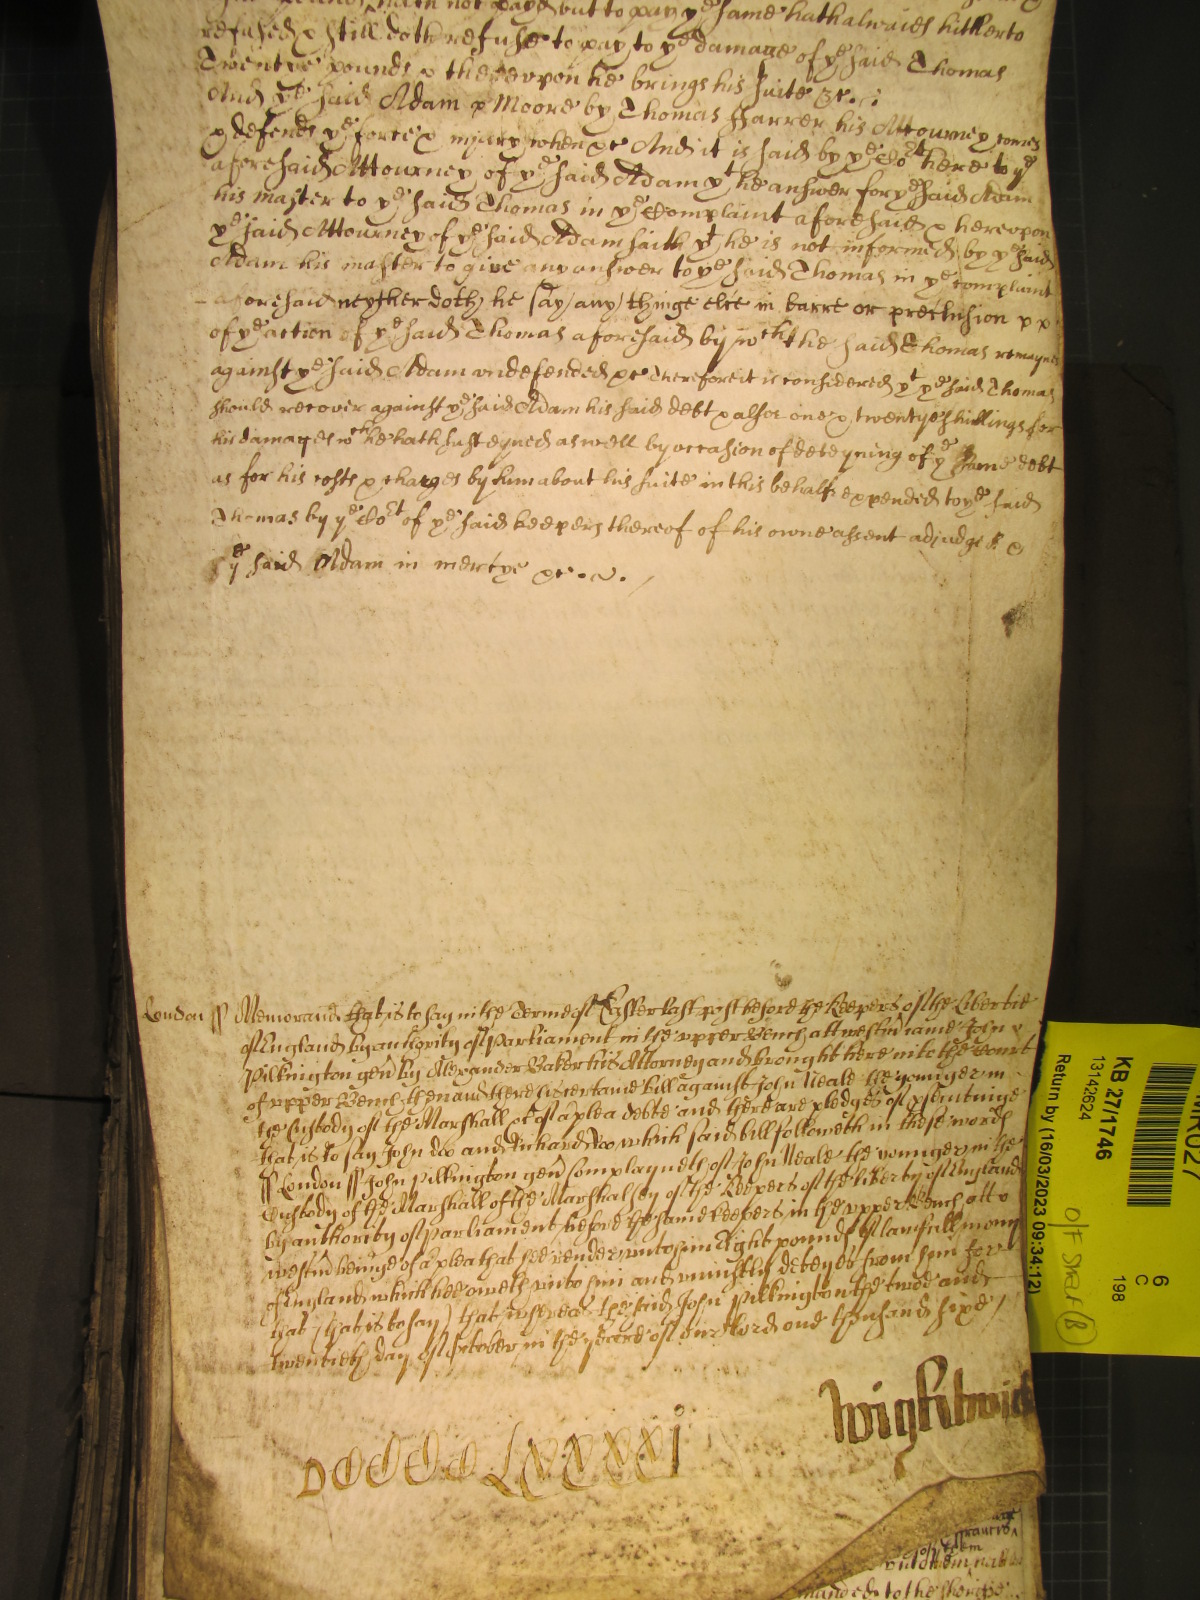 hath not payd but to pay yᵉ same hath alwaies hitherto
refused & still doth refuse to pay to yᵉ damage of yᵉ said Thomas
Twentye pounds & therevpon he brings his suite &c.
And yᵉ said Adam & Moore by Thomas Farrer his Attourney comes
& defends yᵉ force & iniury when &c And it is said by yᵉ Coʳᵗ here to yᵉ
aforesaid Attourney of yᵉ said Adam yᵗ he answer for yᵉ said Adam
his master to yᵉ said Thomas in yᵉ Complaint aforesaid & herevpon
yᵉ said Attourney of yᵉ said Adam saith yᵗ he is not informed by yᵉ said
Adam his master to give any answer to yᵉ said Thomas in yᵉ complaint
aforesaid neyther doth he say any thinge else in barre or preclusion
of yᵉ action of yᵉ said Thomas aforesaid by wᶜʰ the said Thomas remaynes
against yᵉ said Adam vndefended &c Therefore it is considered yᵗ yᵉ said Thomas
should recover against yᵉ said Adam his said debt & alsoe one & twentye shillings for
his damages wᶜʰ he hath susteyned as well by occasion of deteyning of yᵉ same debt
as for his costs & charges by him about his suite in this behalfe expended to yᵉ said
Thomas by yᵉ Coʳᵗ of yᵉ said keepers thereof of his owne assent adjudged &
yᵉ said Adam in mercye &c.
London ss Memorand that is to say in the Terme of Easter last past before the Keepers of the Libertie
of England by authority of Parliament in the vpper Bench att westm came John
Pilkington gen by Alexander Baker his Attorney and brought here into the Court
of vpper Bench then and there his certaine bill against John Neale the younger in
the Custody of the Marshall &c of a plea debte and there are pledges of prosecutinge
that is to say John Doo and Richard Roo which said bill followeth in these words
ss London ss John Pilkington gen Complayneth of John Neale the younger in the
Custody of the Marshall of the Marshalsey of the Keepers of the liberty of England
by authority of Parliament before the same keepers in the vpper Bench att
westm beinge of a plea that hee render vnto him Eight pounds of lawfull mony
of England which hee oweth vnto him and vniustly deteynes from him for
that (that is to say) that whereas the said John Pilkington the twoe and
twentieth day of October in the yeare of our Lord one thousand sixe
wightwick
DCCCCLxxxxj
KB 27/1746
13142624
Return by (16/03/2023 09:34:12)
6
C
198
O/F Shelf B
Francis
manded to the Sherife